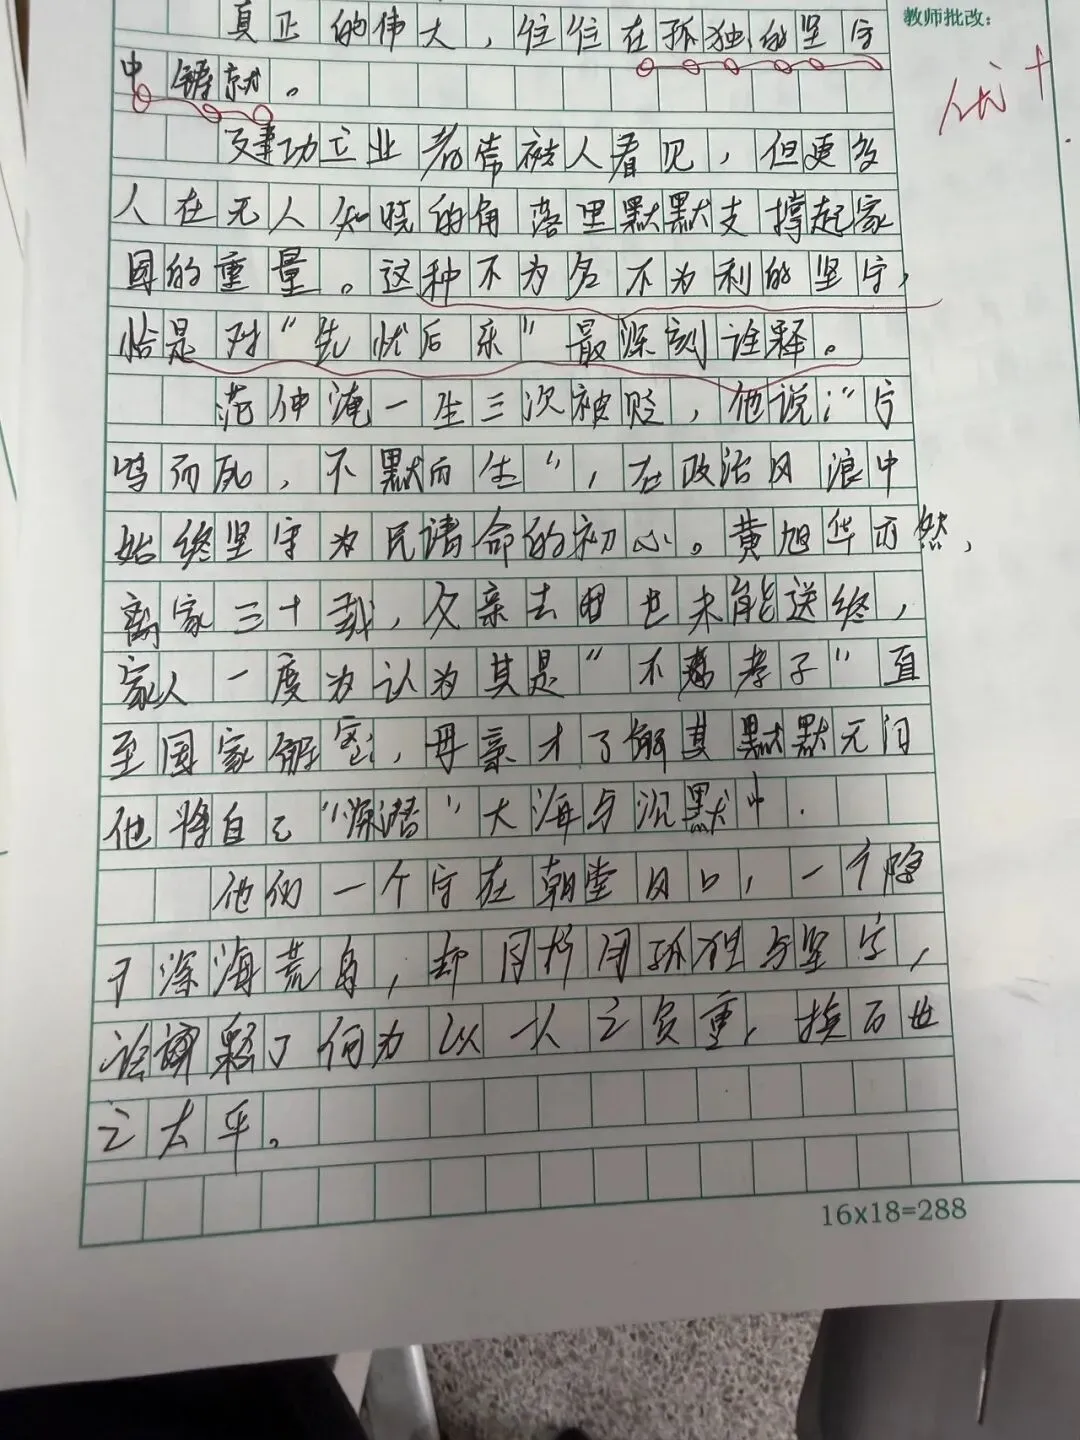 真正的伟大，往往在孤独的坚守
教师批改：
优+
中铸就。
建功立业者常被人看见，但更多
人在无人知晓的角落里默默支撑起家
国的重量。这种不为名不为利的坚守，
恰是对“先忧后乐”最深刻诠释。
范仲淹一生三次被贬，他说：“宁
鸣而死，不默而生”，在政治风浪中
始终坚守为民请命的初心。黄旭华亦然，
离家三十载，父亲去世也未能送终，
家人一度为认为其是“不孝子”直
至国家解密，母亲才了解其默默无闻
他将自己“深潜”大海与沉默中.
他们一个守在朝堂风口，一个隐
于深海荒岛，却同样用孤独与坚守，
诠释了何为以一人之负重，换万世
之太平。
16x18=288